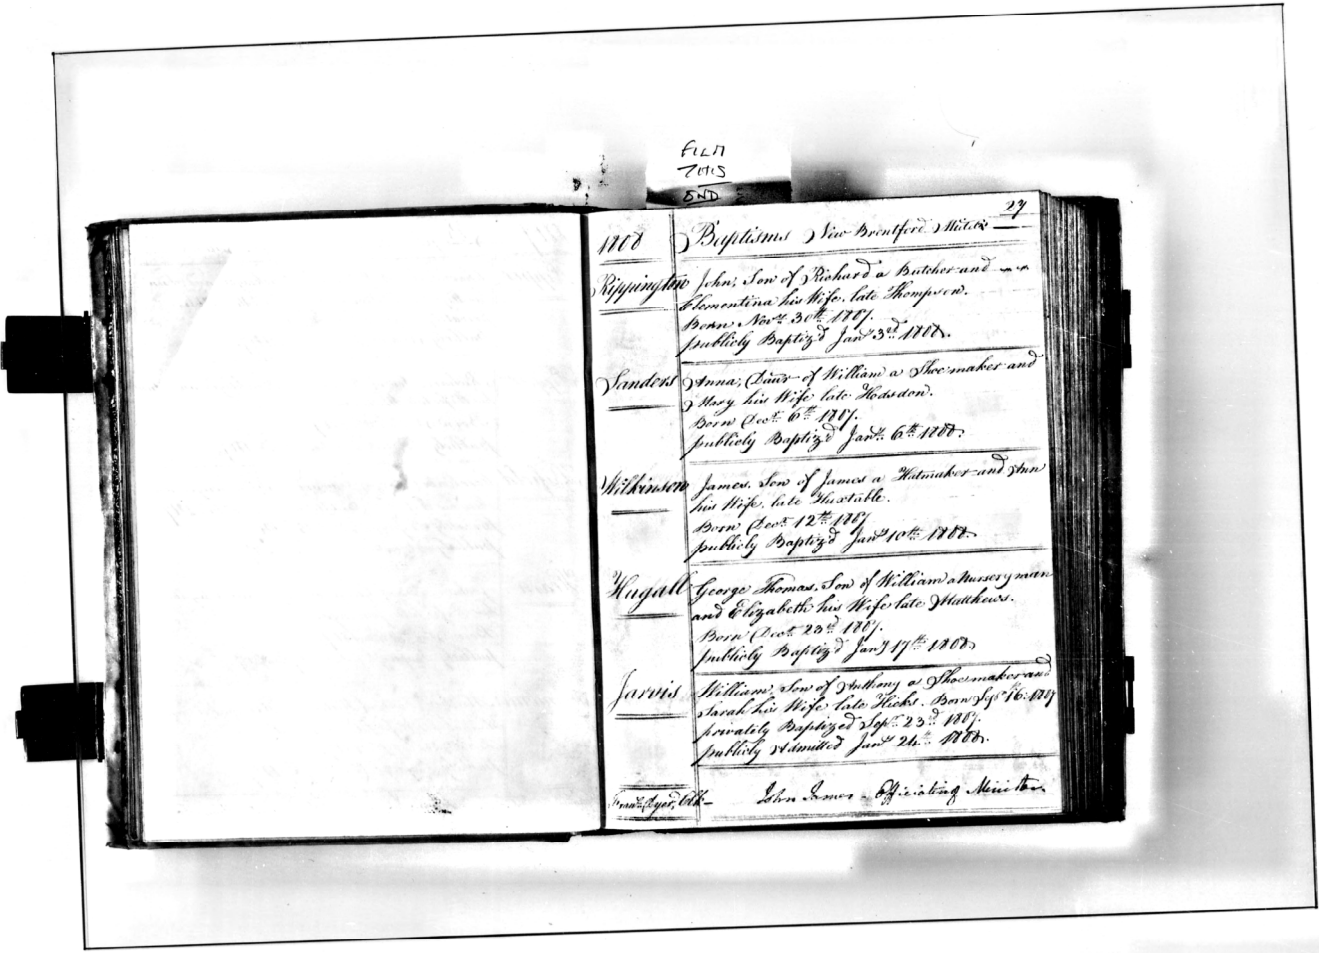 FILM
THIS
END
27
1808 Baptisms New Brentford Middx
Rippington John, Son of Richard a Butcher and
Clementina his Wife, late Thompson.
Born Novr. 30th 1807.
publicly Baptiz'd Jany 3d 1808.
Sanders Anna, Daur of William a Shoemaker and
Mary his Wife late Hodsdon.
Born Decr. 6th 1807.
publicly Baptiz'd Jany. 6th 1808.
Wilkinson James, Son of James a Hatmaker and Ann
his Wife, late Huxtable.
Born Decr. 12th 1807
publicly Baptiz'd Jany 10th 1808.
Hugall George Thomas, Son of William a Nurseryman
and Elizabeth his Wife late Matthews.
Born Decr. 23d 1807.
publicly Baptiz'd Jany 17th 1808
Jarvis William, Son of Anthony a Shoemaker and
Sarah his Wife late Hicks. Born Sepr 16th 1807
privately Baptized Sepr. 23d 1807.
publicly Admitted Jany 24th 1808.
Dyer, Clk John James Officiating Minister